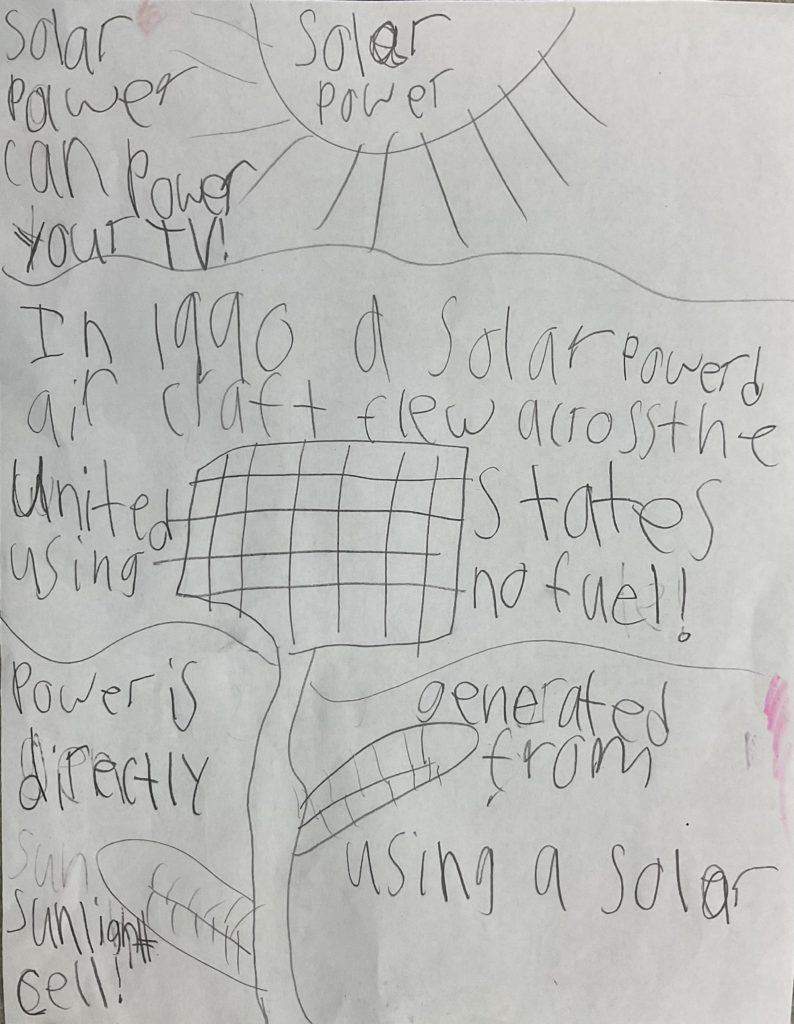 Solar
Power
Solar
Pawer
can Power
Your TV!
In 1990 a Solar Powerd
air craft flew across the
United States
using no fuel!
Power is generated
directly from
sun
sunlight using a solar
cell!